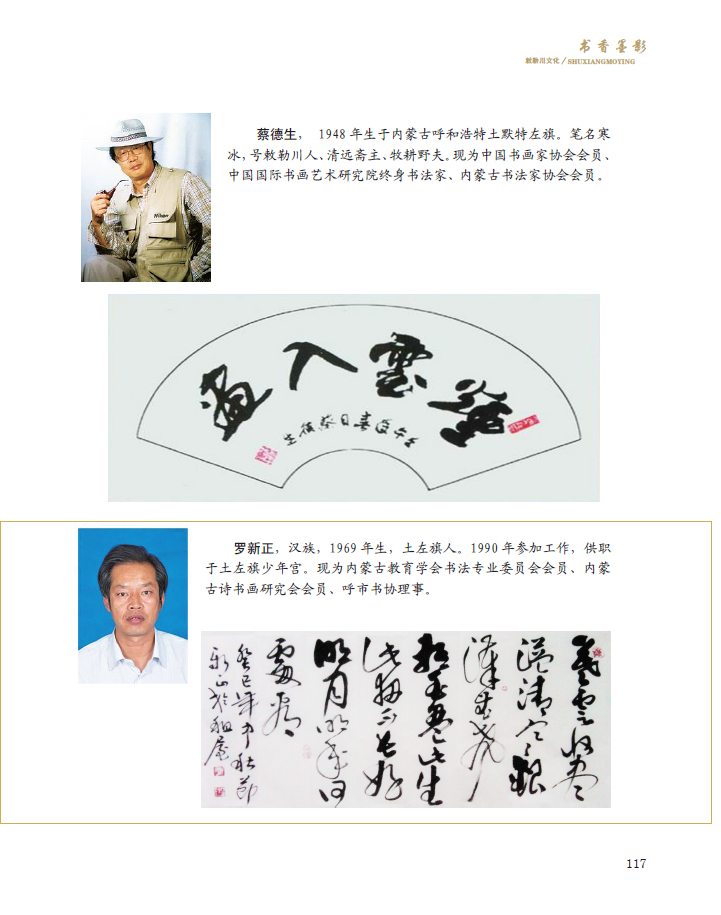 书香墨影
敕勒川文化/SHUXIANGMOYING
蔡德生， 1948 年生于内蒙古呼和浩特土默特左旗。笔名寒
冰，号敕勒川人、清远斋主、牧耕野夫。现为中国书画家协会会员、
中国国际书画艺术研究院终身书法家、内蒙古书法家协会会员。
雲入画
罗新正，汉族，1969 年生，土左旗人。1990 年参加工作，供职
于土左旗少年宫。现为内蒙古教育学会书法专业委员会会员、内蒙
古诗书画研究会会员、呼市书协理事。
暮云收尽
溢清寒银
汉无声
转玉盘此生
此夜不长好
明月明年何
处看
癸巳年中秋节
新正於祖庵
117